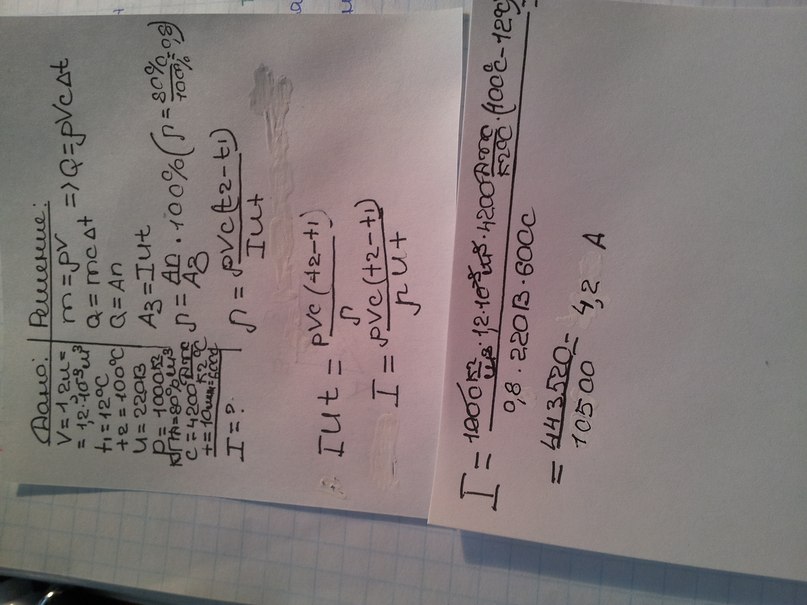 Дано:
V=1,2л=
=1,2·10⁻³м³
t1=12°C
t2=100°C
U=220В
ρ=1000кг/м³
КПД=80%
c=4200Дж/кг°C
t=10мин=600с
I=?
Решение:
m=ρV
Q=mcΔt => Q=ρVcΔt
Q=Aп
Aз=IUt
η=Aп/Aз·100% (η=80%/100%=0,8)
η=ρVc(t2-t1)/IUt
IUt=ρVc(t2-t1)/η
I=ρVc(t2-t1)/ηUt
I=1000кг/м³·1,2·10⁻³м³·4200Дж/кг°C·(100°C-12°C)/0,8·220В·600с
=443520/10500=4,2 А